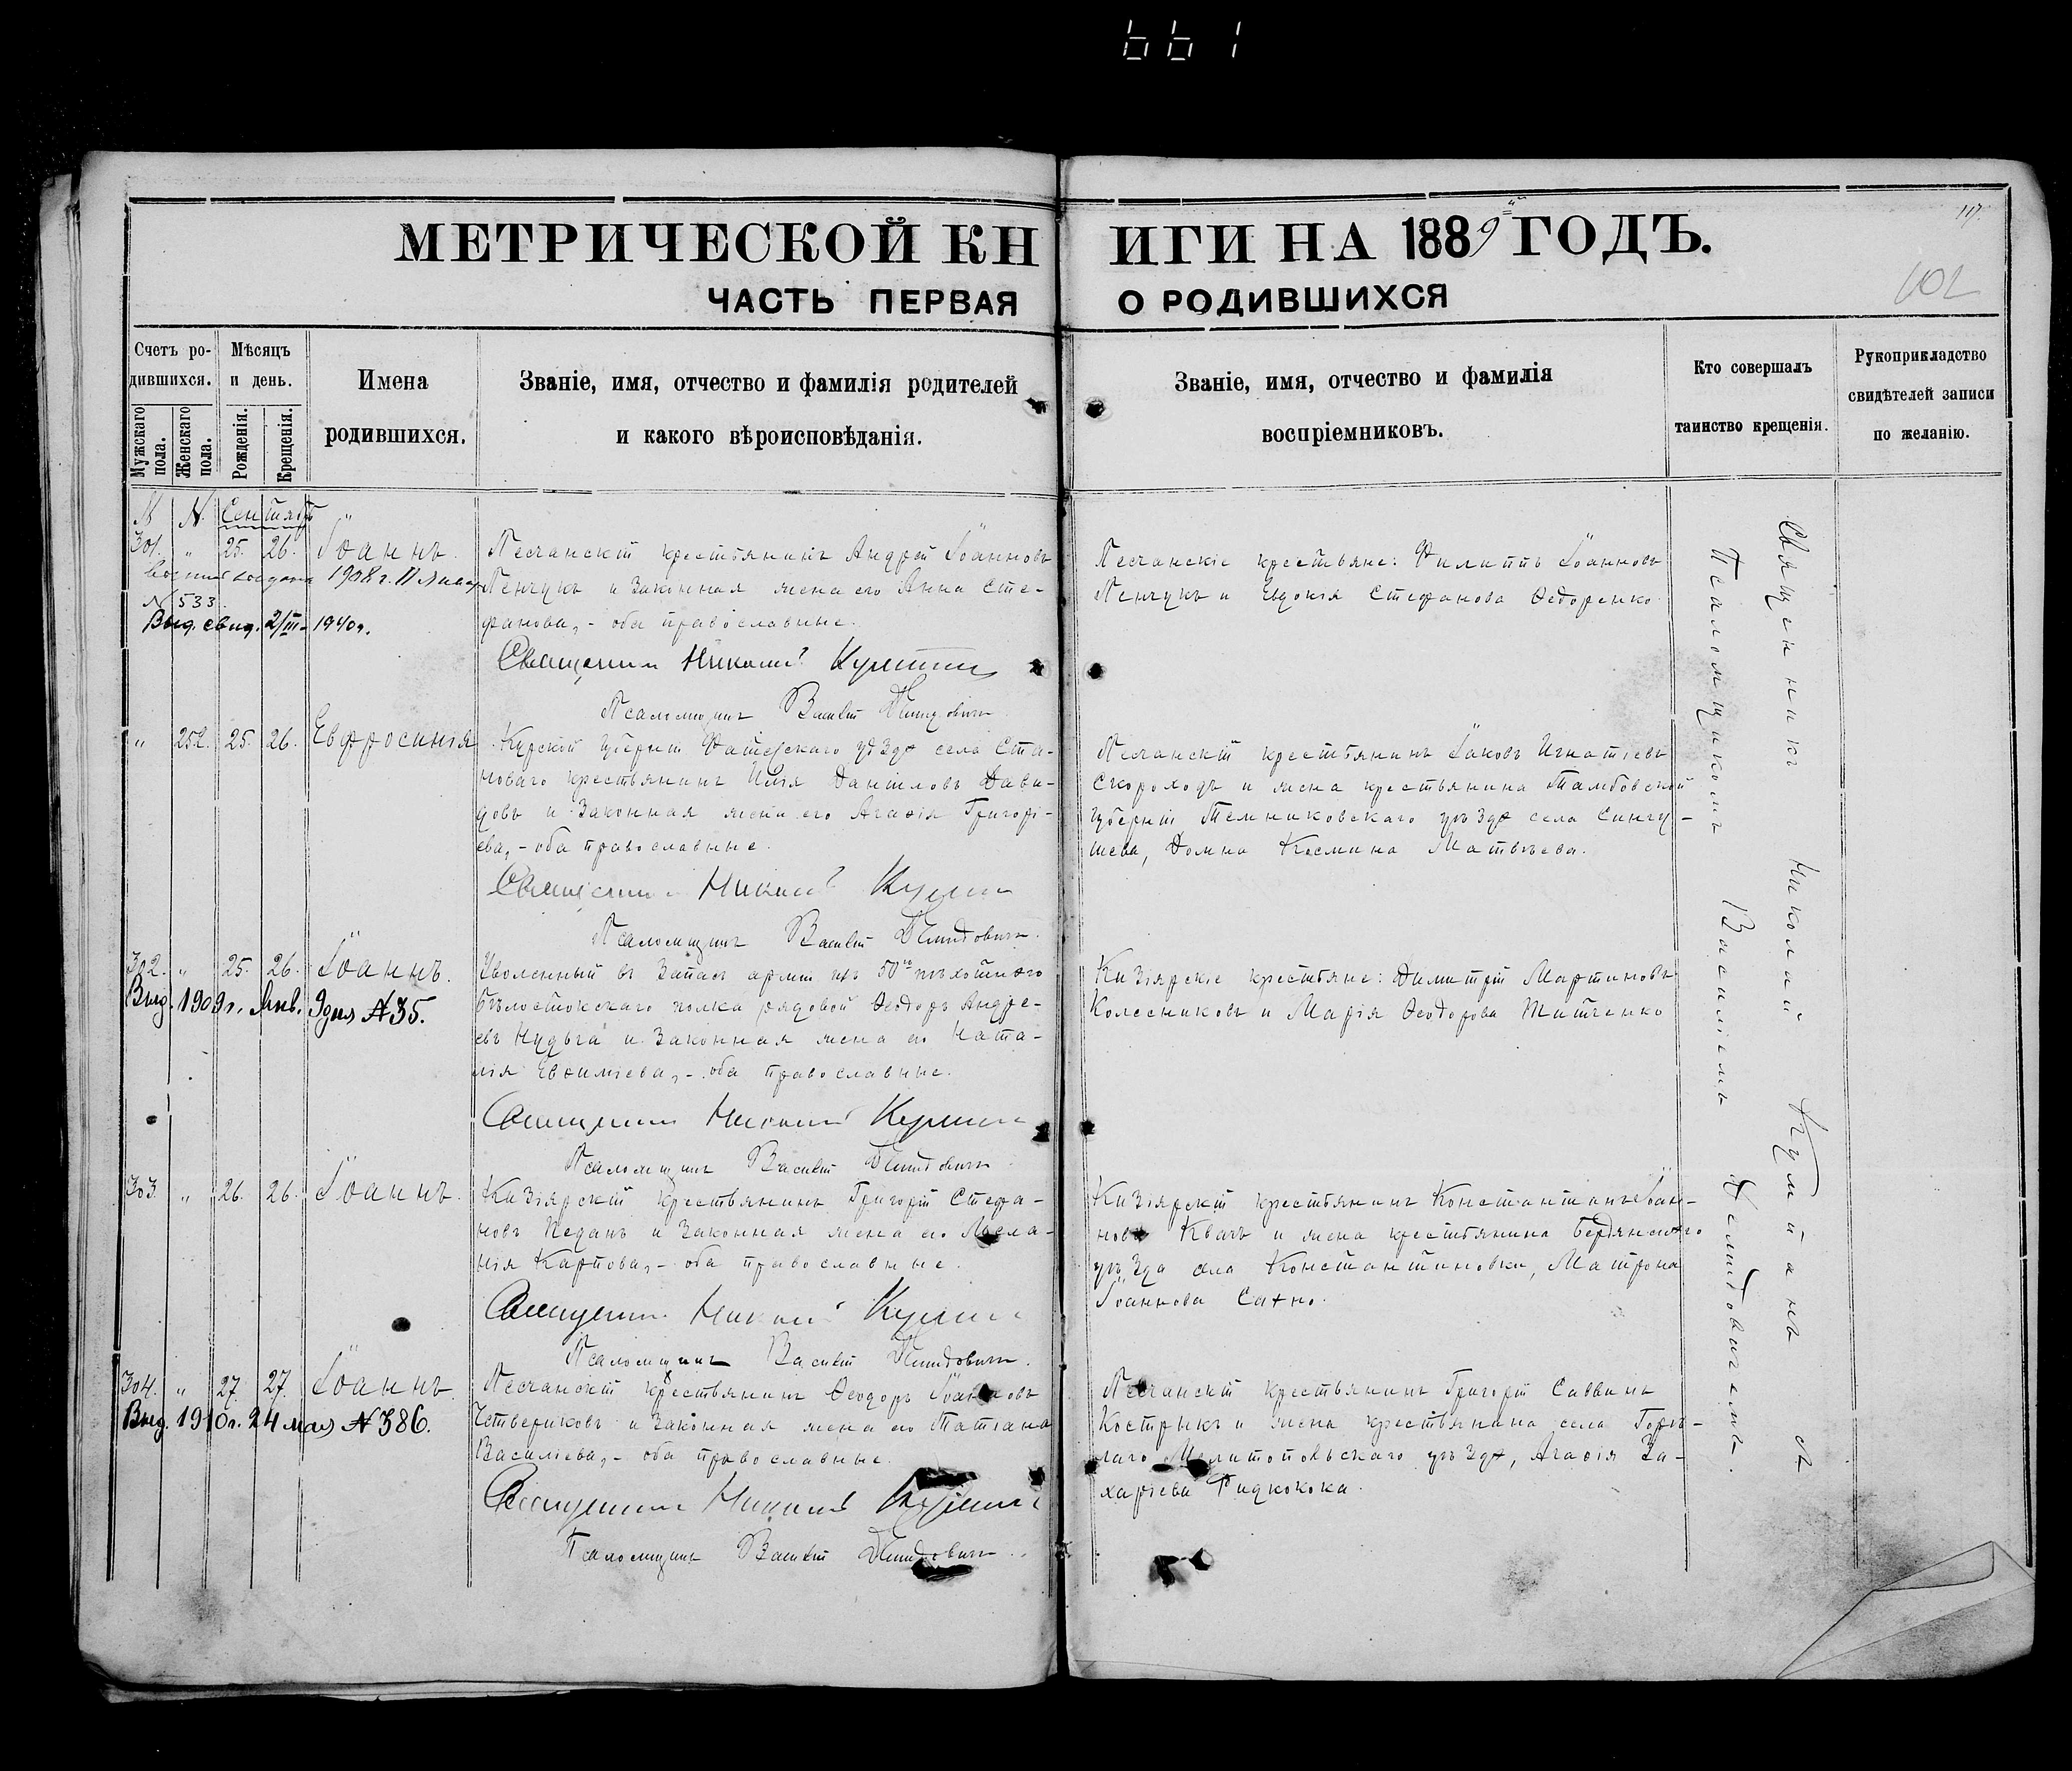 661
МЕТРИЧЕСКОЙ КНИГИ НА 1889 ГОДЪ.
117.
ЧАСТЬ ПЕРВАЯ О РОДИВШИХСЯ
102
Счетъ родившихся.
Мужскаго пола.
Женскаго пола.
Мѣсяцъ и день.
Рожденія.
Крещенія.
Имена родившихся.
Званіе, имя, отчество и фамилія родителей
и какого вѣроисповѣданія.
Званіе, имя, отчество и фамилія
воспріемниковъ.
Кто совершалъ
таинство крещенія.
Рукоприкладство
свидѣтелей записи
по желанію.
301. " 25. 26. Іоаннъ.
1908 г.
N 533.
Выд. свид. 2/III - 1940г.
Песчанскій крестьянинъ Андрей Іоанновъ
Пенчукъ и законная жена его Анна Сте-
фанова, - оба православные.
Священникъ Николай
Псаломщикъ Василій Демидовичъ
Песчанскіе крестьяне: Филиппъ Іоанновъ
Пенчукъ и Евдокія Стефанова Ѳедоренко
" 252. 25. 26. Евфросинія
Курской губерніи Фатежскаго уѣзда села Ста-
новаго крестьянинъ Илія Даніиловъ Дави-
довъ и законная жена его Агаѳія Григорі-
ева, - оба православные.
Священникъ Николай
Псаломщикъ Василій Демидовичъ.
Песчанскій крестьянинъ Іаковъ Игнатіевъ
Скороходъ и жена крестьянина Тамбовской
губерніи Темниковскаго уѣзда села
Домна Космина Матвѣева.
302. " 25. 26. Іоаннъ.
Выд. 1909 г. Янв. 9 дня N 35.
Уволенный въ запасъ арміи изъ 50го пѣхотнаго
Бѣлостокскаго полка рядовой Ѳеодоръ Андре-
евъ Нудьга и законная жена его Ната-
лія Евѳиміева, - оба православные.
Священникъ Николай
Псаломщикъ Василій Демидовичъ.
Кизіярскіе крестьяне: Димитрій Мартиновъ
Колесниковъ и Марія Ѳеодорова
303. " 26. 26. Іоаннъ.
Кизіярскій крестьянинъ Григорій Стефа-
новъ Педанъ и законная жена его Мела-
нія Карпова, - оба православные.
Священникъ Николай
Псаломщикъ Василій Демидовичъ.
Кизіярскій крестьянинъ Константинъ Іоан-
новъ Квачъ и жена крестьянина Бердянскаго
уѣзда села Константиновки, Матрона
Іоаннова Сахно.
304. " 27 27. Іоаннъ.
Выд. 1910 г. 24 мая N 386.
Песчанскій крестьянинъ Ѳеодоръ Іоанновъ
Четвериковъ и законная жена его Татіана
Василіева, - оба православные.
Священникъ Николай
Псаломщикъ Василій Демидовичъ.
Песчанскій крестьянинъ Григорій Саввинъ
Кострыкъ и жена крестьянина села Горѣ-
лаго Мелитопольскаго уѣзда, Агаѳія За-
харіева
Священникъ Николай съ
Псаломщикомъ Василіемъ Демидовичемъ.